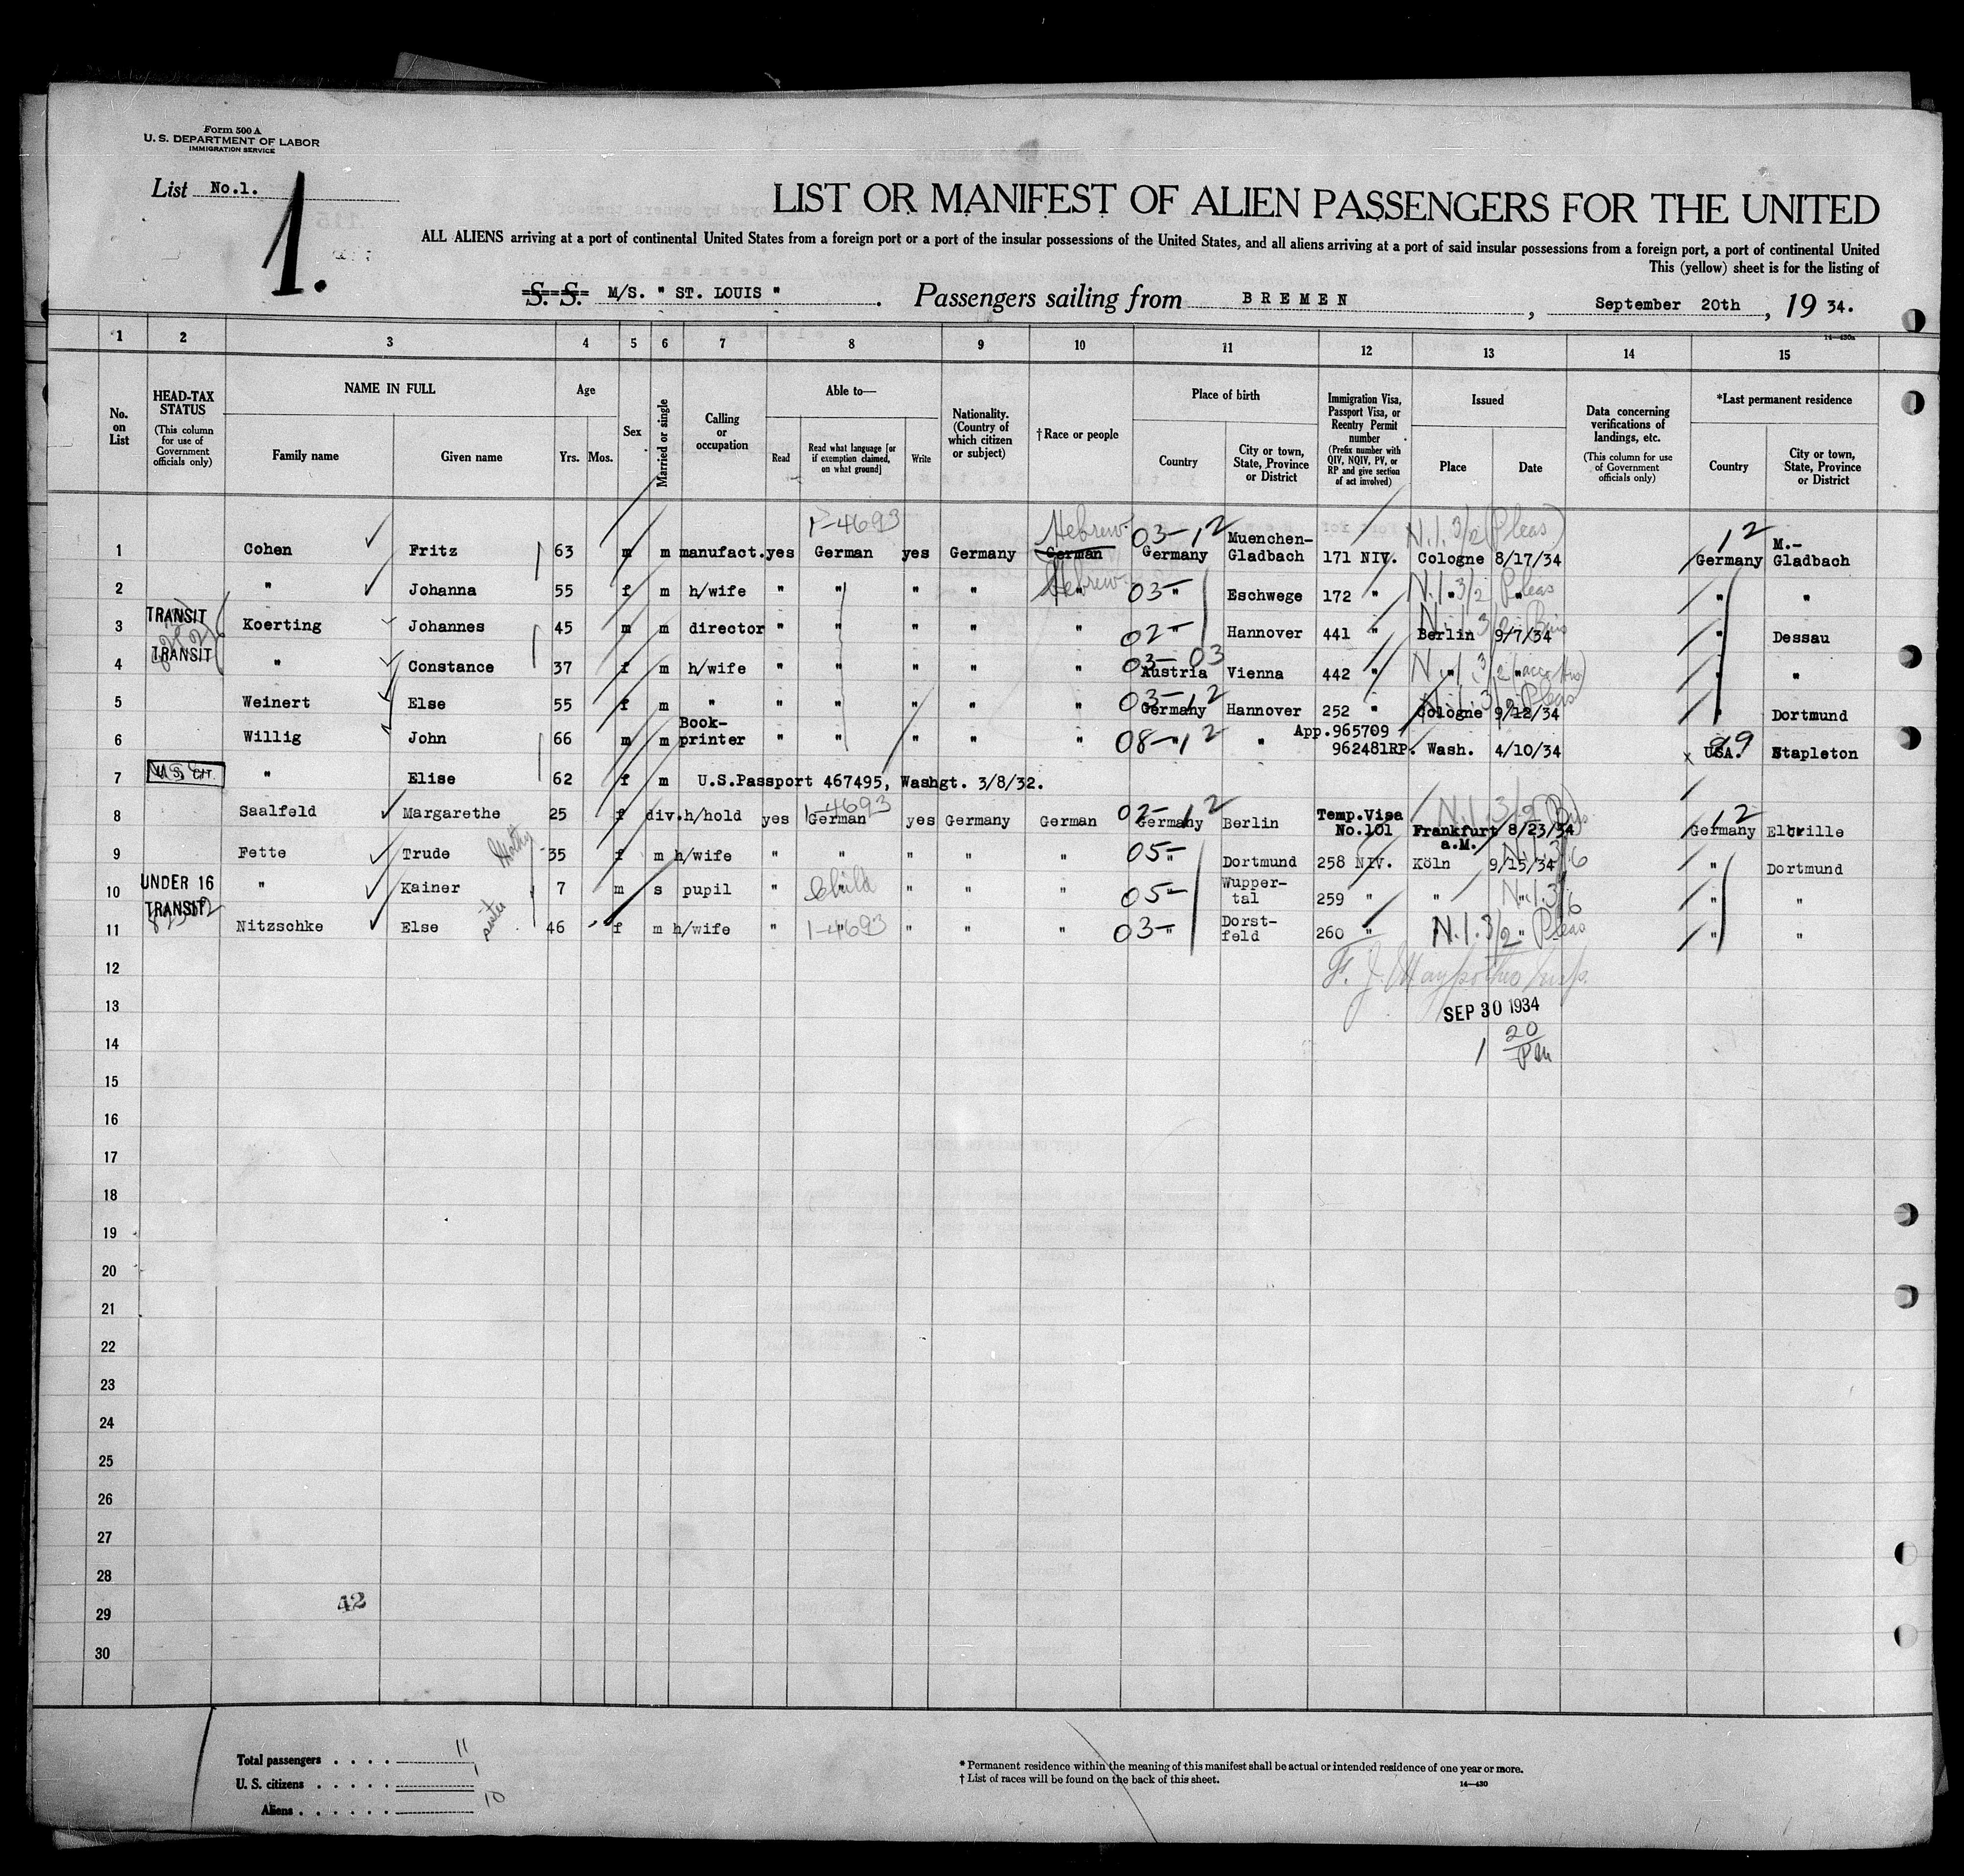 Form 500 A
U. S. DEPARTMENT OF LABOR
IMMIGRATION SERVICE
List No.1.
1.
LIST OR MANIFEST OF ALIEN PASSENGERS FOR THE UNITED
ALL ALIENS arriving at a port of continental United States from a foreign port or a port of the insular possessions of the United States, and all aliens arriving at a port of said insular possessions from a foreign port, a port of continental United
This (yellow) sheet is for the listing of
S. S. M/S. " ST. LOUIS " . Passengers sailing from BREMEN , September 20th , 19 34.
14—430a
1 2 3 4 5 6 7 8 9 10 11 12 13 14 15
No. on List
HEAD-TAX STATUS (This column for use of Government officials only)
NAME IN FULL Family name Given name
Age Yrs. Mos.
Sex
Married or single
Calling or occupation
Able to— Read Read what language [or if exemption claimed, on what ground] Write
Nationality. (Country of which citizen or subject)
†Race or people
Place of birth Country City or town, State, Province or District
Immigration Visa, Passport Visa, or Reentry Permit number (Prefix number with QIV, NQIV, PV, or RP and give section of act involved)
Issued Place Date
Data concerning verifications of landings, etc. (This column for use of Government officials only)
*Last permanent residence Country City or town, State, Province or District
1-4693 Hebrew 03-12 N.1.3/2 (Pleas) 12
1 Cohen Fritz 63 m m manufact. yes German yes Germany German Germany Muenchen-Gladbach 171 NIV. Cologne 8/17/34 Germany M.-Gladbach
Hebrew 03- N.1.3/2 Pleas
2 " Johanna 55 f m h/wife " " " " " " Eschwege 172 " " " " "
TRANSIT 02-
3 Koerting Johannes 45 m m director " " " " " " Hannover 441 " Berlin 9/7/34 " Dessau
TRANSIT 03-03
4 " Constance 37 f m h/wife " " " " " Austria Vienna 442 " " " " "
03-12 N.1.3/2 Pleas
5 Weinert Else 55 f m " " " " " " Germany Hannover 252 " Cologne 9/12/34 " Dortmund
08-12 99
6 Willig John 66 m m Book-printer " " " " " " App.965709 962481RP. Wash. 4/10/34 x USA. Stapleton
7 U.S. CIT. " Elise 62 f m U.S.Passport 467495, Washgt. 3/8/32.
1-4693 02-12 12
8 Saalfeld Margarethe 25 f div. h/hold yes German yes Germany German Germany Berlin Temp.Visa No.101 Frankfurt a.M. 8/23/34 Germany
05- N.1.3/6
9 Fette Trude 35 f m h/wife " " " " " " Dortmund 258 NIV. Köln 9/15/34 " Dortmund
UNDER 16 Child 05- N.1.3/6
10 " Kainer 7 m s pupil " " " " " Wupper-tal 259 " " " " "
TRANSIT sister 1-4693 03- N.1.3/2 Pleas
11 Nitzschke Else 46 f m h/wife " " " " " " Dorst-feld 260 " " " " "
12
13 SEP 30 1934
14 1 20 PM
15
16
17
18
19
20
21
22
23
24
25
26
27
28
29 42
30
Total passengers . . . . 11
U. S. citizens . . . . . 1
Aliens . . . . . . 10
* Permanent residence within the meaning of this manifest shall be actual or intended residence of one year or more.
† List of races will be found on the back of this sheet.
14—430